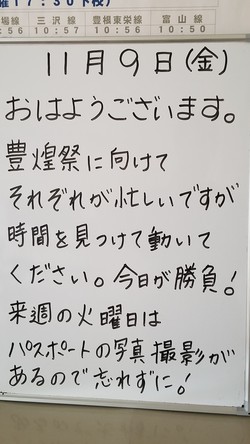 曜17:30下校)
場線 三沢線 豊根東栄線 富山線
:56 10:57 10:56 10:50
11月9日(金)
おはようございます。
豊煌祭に向けて
それぞれが忙しいですが
時間を見つけて動いて
ください。今日が勝負!
来週の火曜日は
パスポートの写真撮影が
あるので忘れずに!